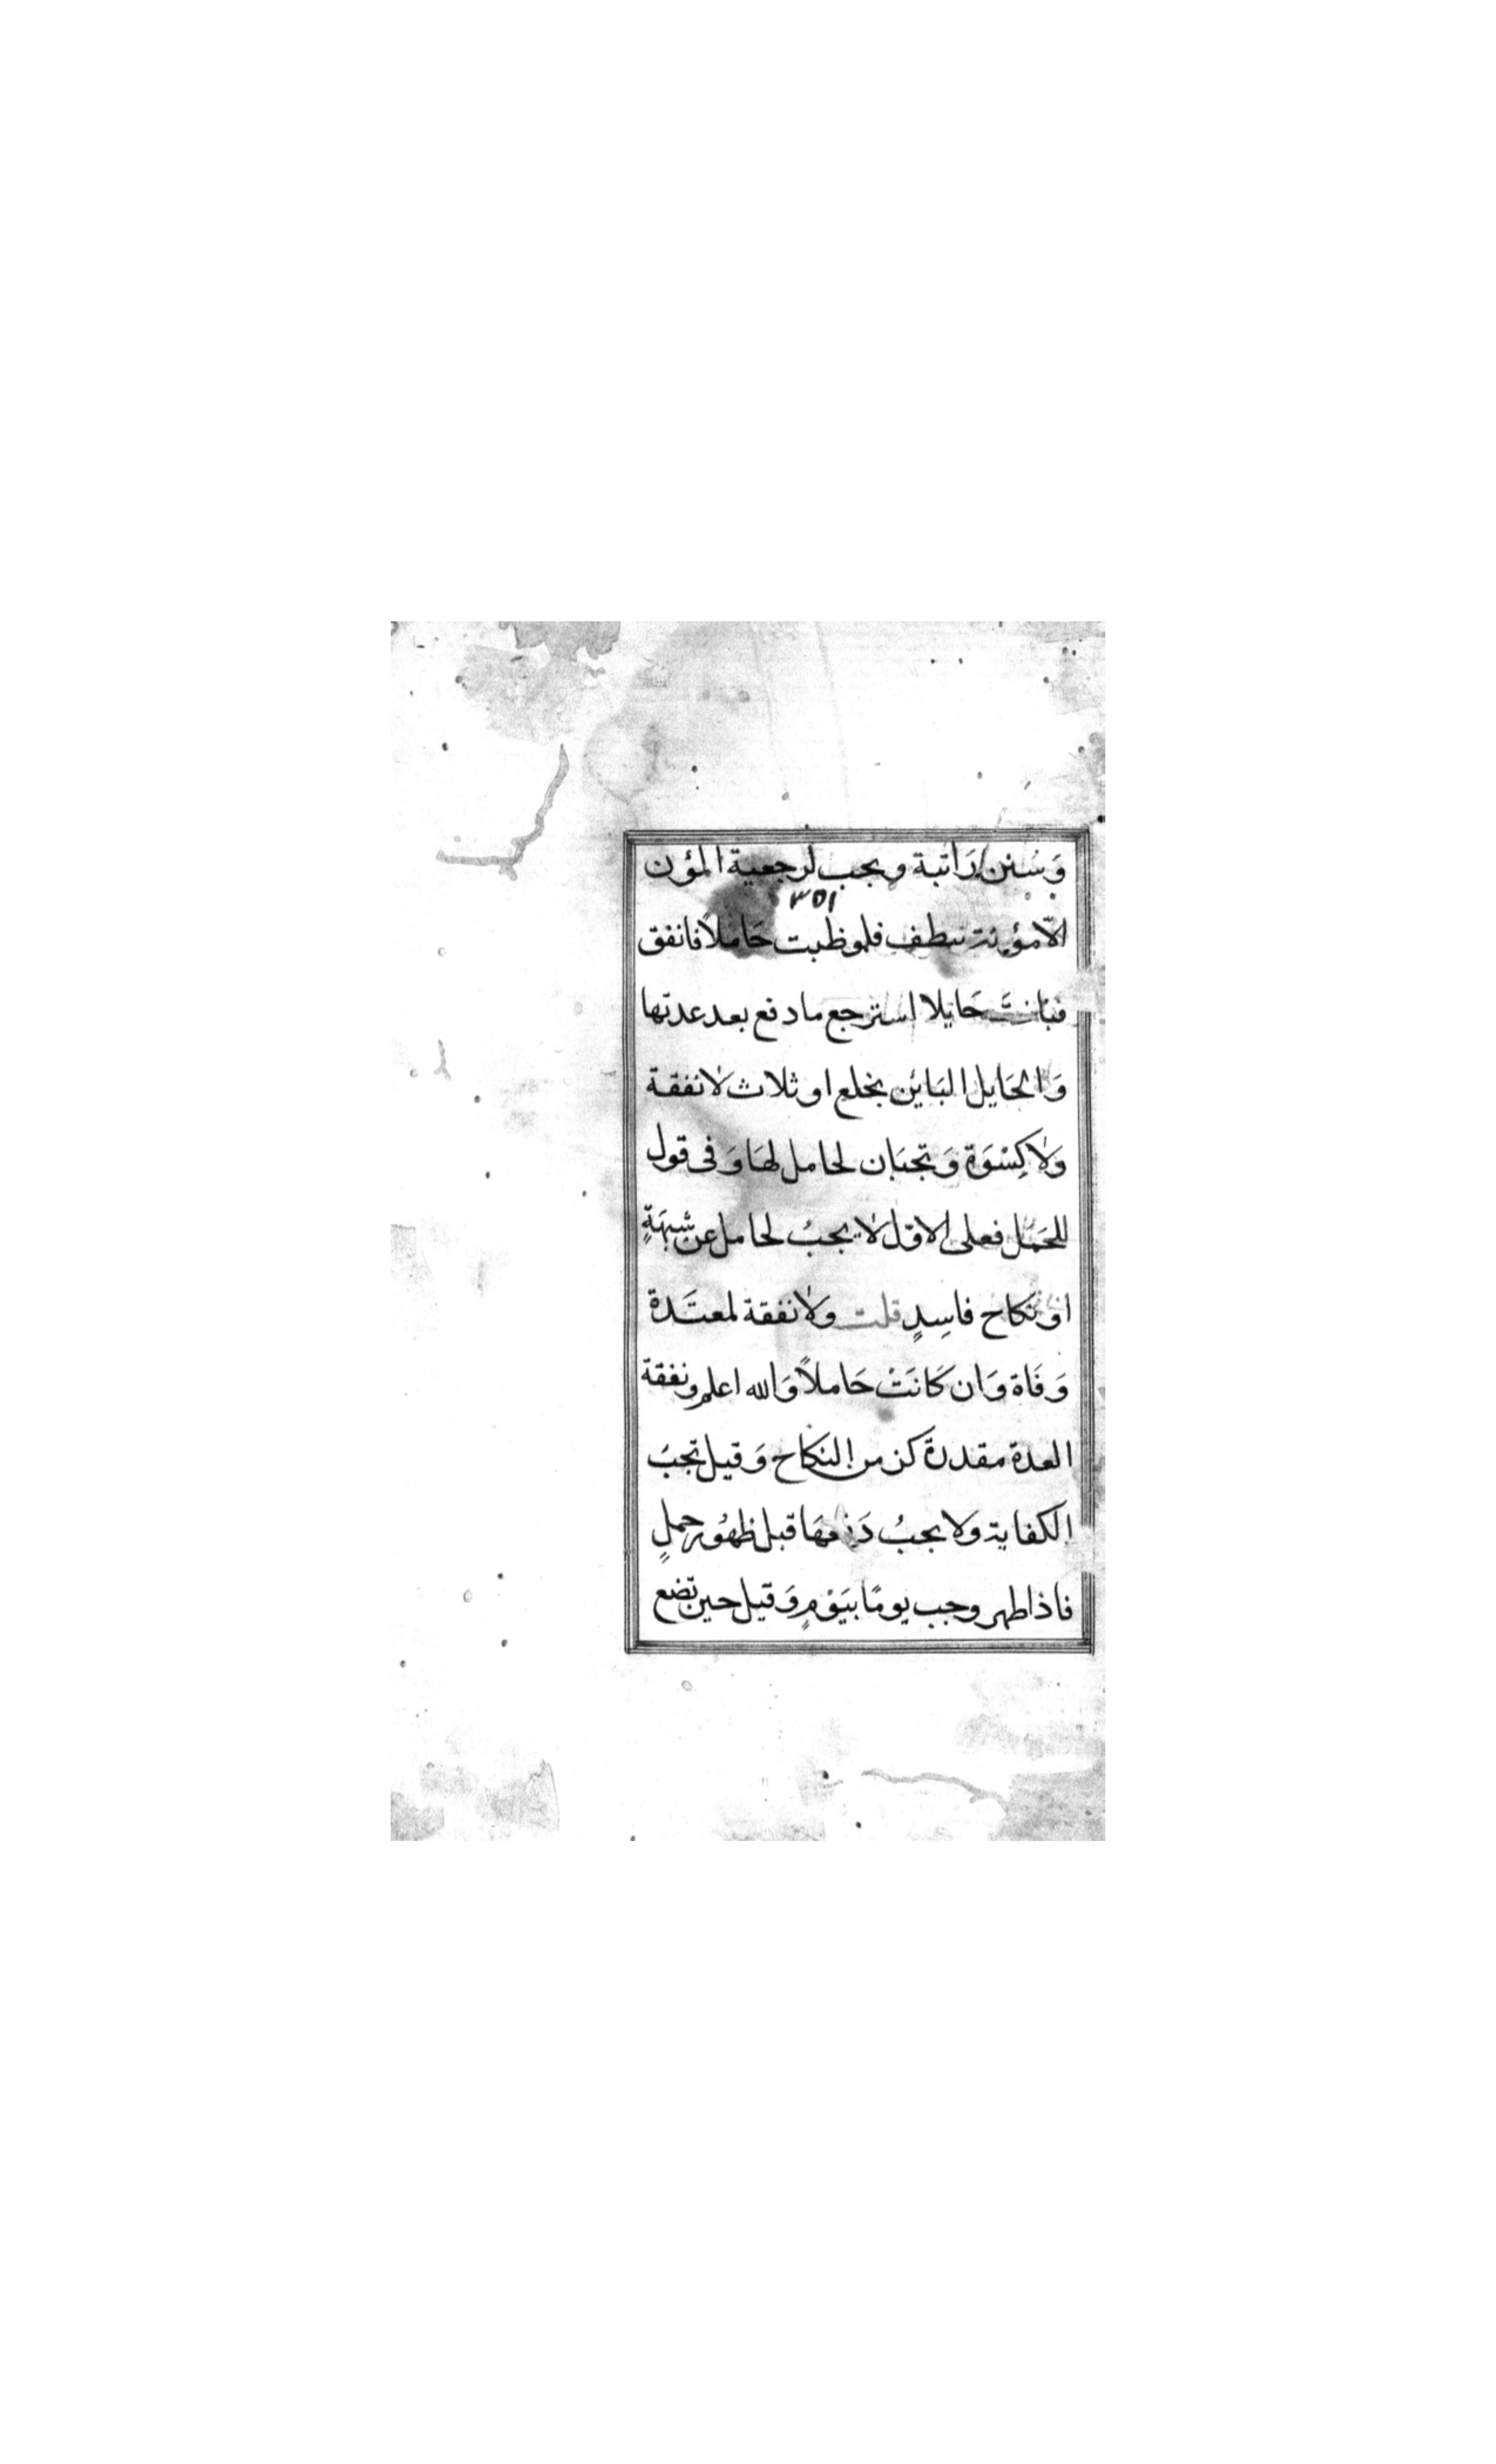 وَسُنن رَاتبة ويجب لرجعية المؤن
٣٥١
الّا مؤنة تنظف فلو ظبت حَاملاً فانفق
فبَانتَ حَايلا استرجع ما دفع بعد عدتها
وَالحَايل البَائن بخلع او ثلاث لا نفقة
وَلا كِسْوَة وَتجبَان لحامل لهَا وَفى قول
للحَمل فعلى الاوّل لا يجبُ لحامل عن شبهَةٍ
او نكاح فاسِدٍ قلت ولا نفقة لمعتَدة
وَفَاة وَان كَانَتْ حَاملاً وَالله اعلم ونفقة
العدة مقدرة كزمن النكاح وَقيل تجبُ
الكفاية ولا يجبُ دَفعهَا قبل ظهُور حملٍ
فاذا ظهر وجب يومًا بيَوْمٍ وَقيل حين تضع